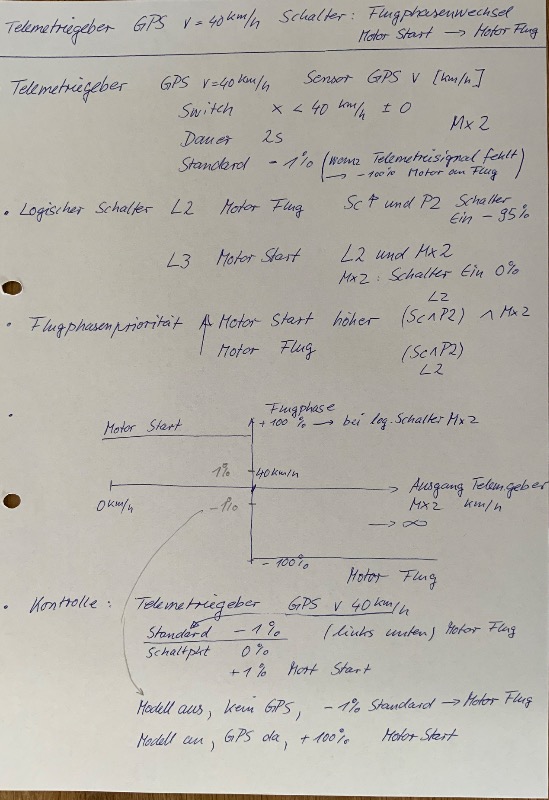 Telemetriegeber GPS v = 40 km/h Schalter: Flugphasenwechsel
Motor Start → Motor Flug
Telemetriegeber GPS v=40 km/h Sensor GPS v [km/h]
Switch x < 40 km/h ± 0
Mx2
Dauer 2s
Standard - 1% (wenn Telemetriesignal fehlt)
→ -100% Motor an Flug
• Logischer Schalter L2 Motor Flug Sc↑ und P2 Schalter
Ein - 95%
L3 Motor Start L2 und Mx2
Mx2: Schalter Ein 0%
L2
• Flugphasenpriorität ↑ Motor Start höher (Sc∧P2) ∧ Mx2
Motor Flug (Sc∧P2)
L2
• Flugphase
Motor Start + 100% → bei log. Schalter Mx2
1% 40 km/h
0 km/h → Ausgang Telemgeber
-1% Mx2 km/h
→ ∞
- 100%
Motor Flug
• Kontrolle: Telemetriegeber GPS v 40 km/h
Standard - 1% (links unten) Motor Flug
Schaltpkt 0%
+1% Mort Start
Modell aus, kein GPS, - 1% Standard → Motor Flug
Modell an, GPS da, + 100% Motor Start